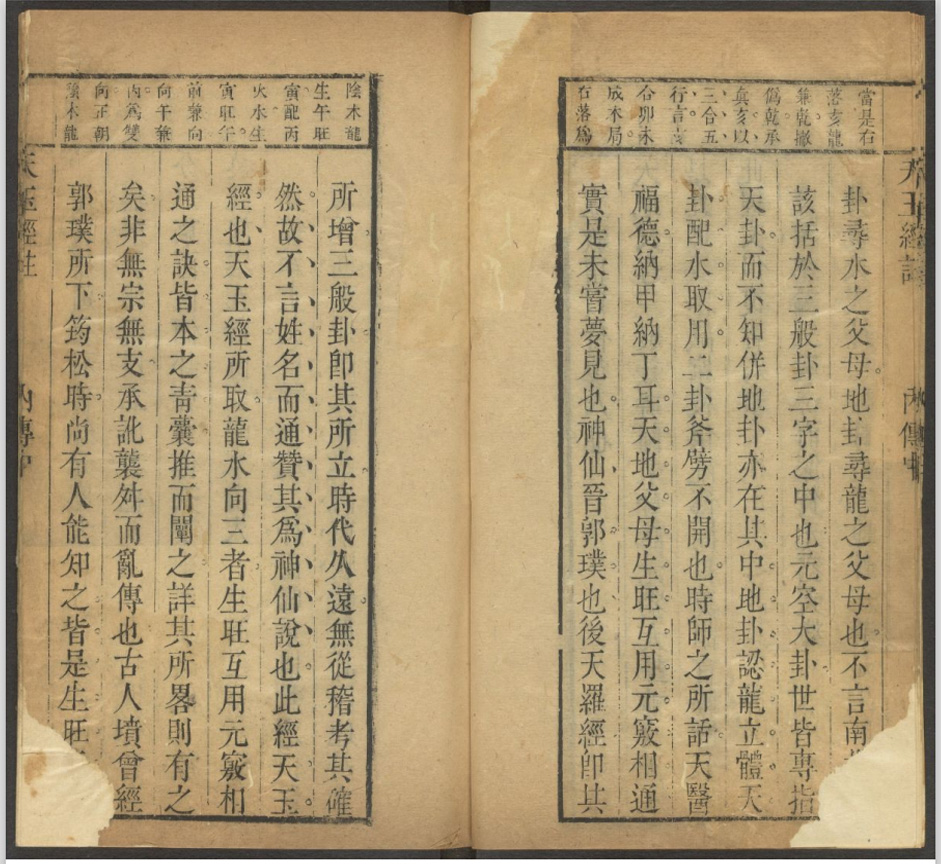 當是右
落亥龍
兼乾撇
為乾承
真亥以
三合五
行言亥
合卯未
成木局
右落為
卦尋水之父母地卦尋龍之父母也不言南
該括於三般卦三字之中也元空大卦世皆專指
天卦而不知併地卦亦在其中地卦認龍立體天
卦配水取用二卦斧劈不開也時師之所話天醫
福德納甲納丁耳天地父母生旺互用元竅相通
實是未嘗夢見也神仙晉郭璞也後天羅經卽其
天玉經註
內傳中
陰木龍
生午旺
寅配丙
火水生
寅旺午
前兼向
向午兼
丙為雙
向正朝
陰木龍
所增三般卦卽其所立時代久遠無從稽考其確
然故不言姓名而通贊其爲神仙說也此經天玉
經也天玉經所取龍水向三者生旺互用元竅相
通之訣皆本之靑囊推而闡之詳其所畧則有之
矣非無宗無支承訛襲舛而亂傳也古人墳曾經
郭璞所下筠松時尚有人能知之皆是生旺
天玉經註
內傳中